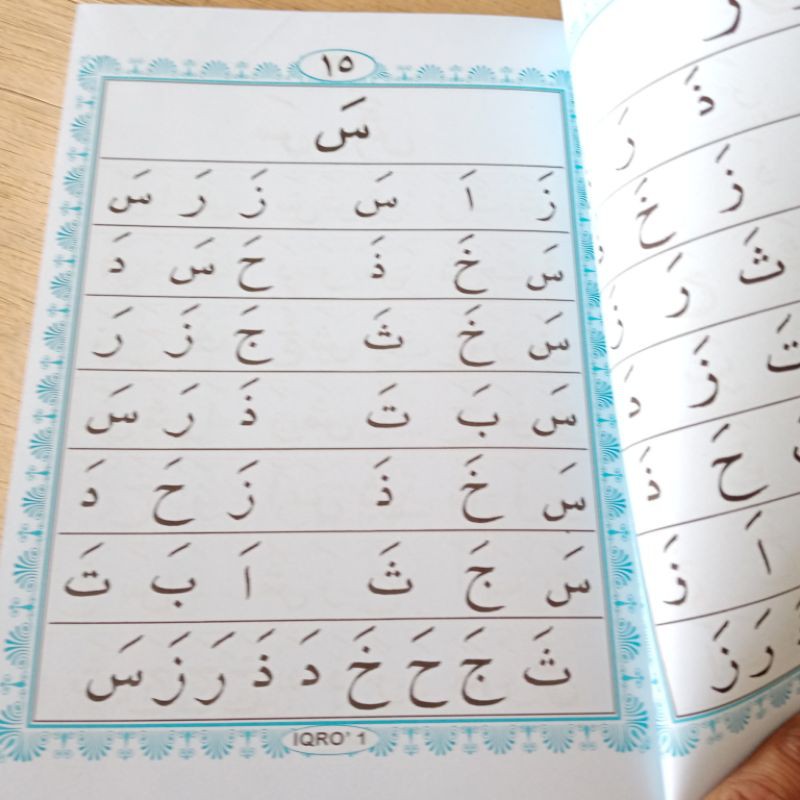 ١٥
سَ
زَ اَ سَ زَ رَ سَ
سَ خَ ذَ حَ سَ دَ
سَ خَ ثَ جَ زَ رَ
سَ بَ تَ ذَ رَ سَ
سَ خَ ذَ زَ حَ دَ
سَ جَ ثَ اَ بَ تَ
ثَ جَ حَ خَ دَ ذَ رَ زَ سَ
IQRO' 1
ذَ رَ
زَ خَ
ثَ رَ زَ
تَ زَ دَ
حَ ذَ
اَ زَ
رَ زَ